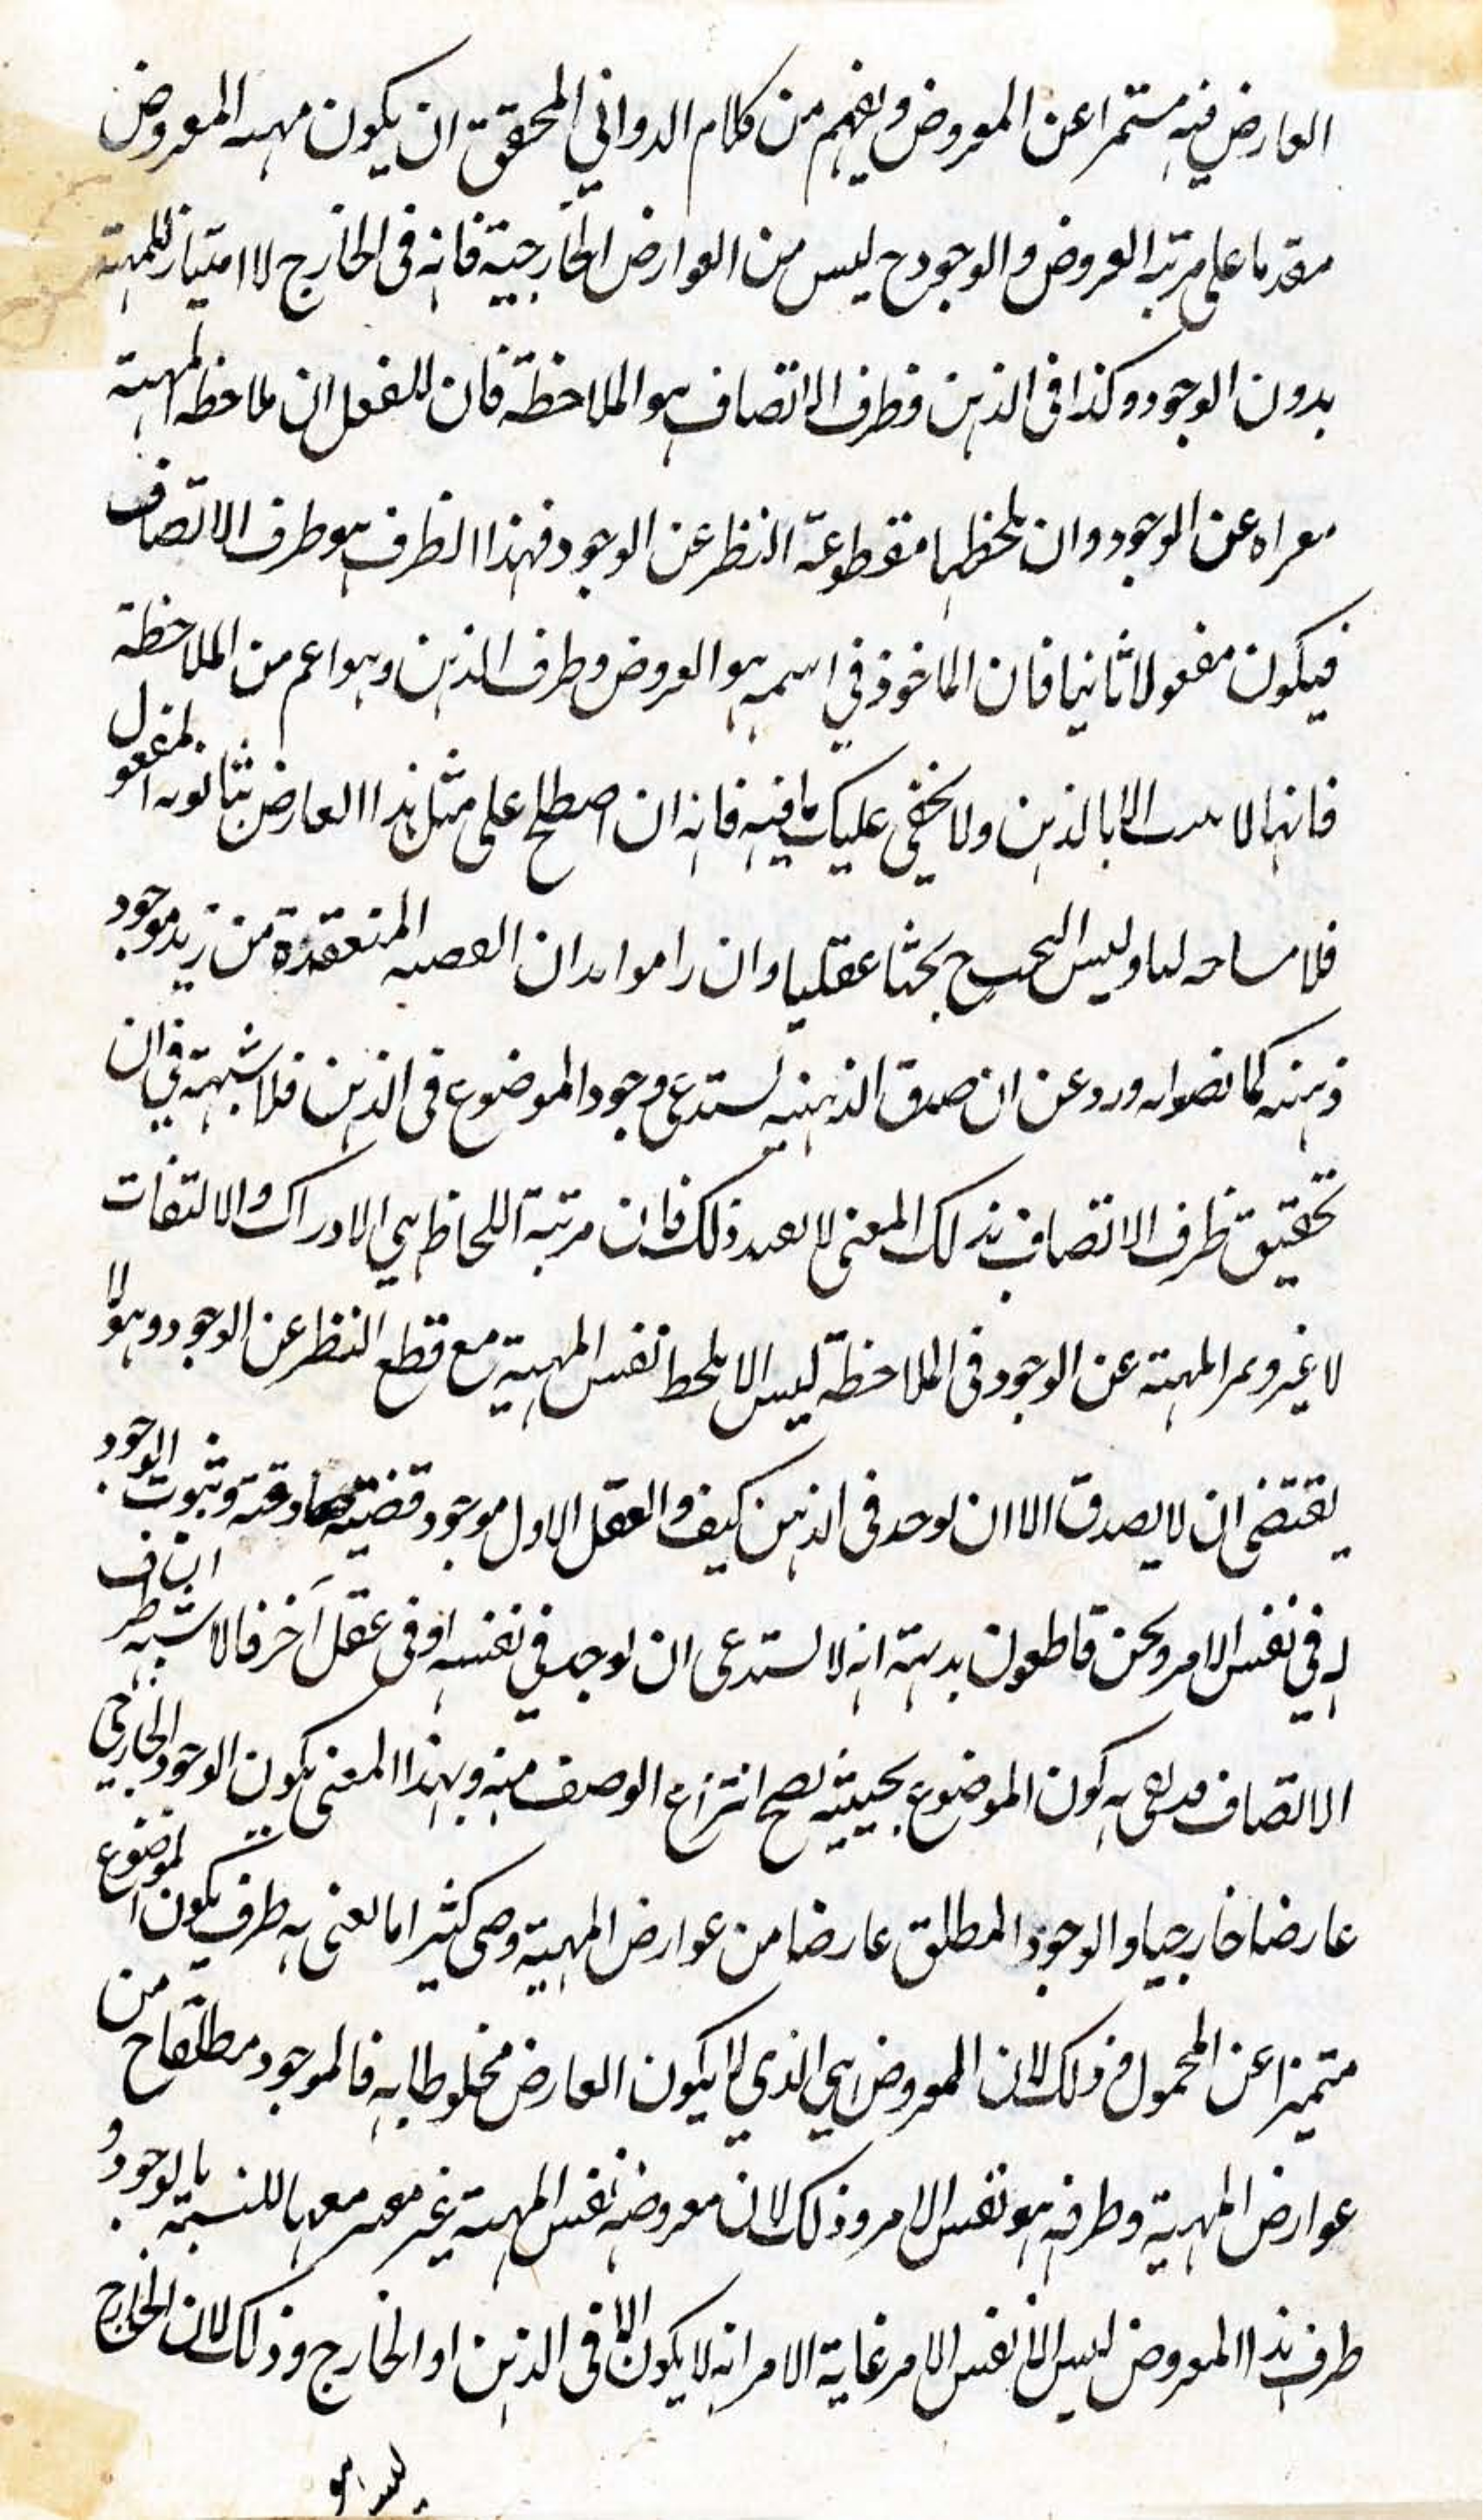 العارض فيه متميزا عن المعروض ويفهم من كلام الدواني المحقق ان يكون مهية المعروض
مقدما على مرتبة العروض والوجود ح ليس من العوارض الخارجية فانه فى الخارج لا امتياز للمهية
بدون الوجود وكذا فى الذهن وظرف الاتصاف هو الملاحظة فان للعقل ان ملاحظه المهية
معراه عن الوجود وان يلحظها مقطوعة النظر عن الوجود فهذا الظرف هو ظرف الاتصاف
فيكون مفعولا ثانيا فان الماخوذ في اسمه هو العروض وظرف الذهن وهو اعم من الملاحظة
فانها لا الا بالذهن ولا يخفى عليك ما فيه فانه ان اصطلح على مثل هذا العارض بثانويه المفعول
فلا مساحه لنا وليس البحث ح بحثا عقليا وان راموا به ان القصيه المنعقدة من زيد موجود
ذهنيه كما ورد عن ان صدق الذهنيه لستدعى وجود الموضوع فى الذهن فلا شبهة في ان
تحقيق ظرف الاتصاف بذلك المعنى لا يفيد ذلك فان مرتبة اللحاظ هي الادراك والالتفات
لا غير المهية عن الوجود فى الملاحظة ليس الا يلحظ نفس المهية مع قطع النظر عن الوجود وهو لا
يقتضى ان لا يصدق الا ان يوجد فى الذهن كيف والعقل الاول موجود قضية صادقة وثبوت الوجود
له في نفس الامر ونحن قاطعون بديهة انه لا لستدعى ان يوجد في نفسه او فى عقل آخر فالاشبه ان ظرف
الاتصاف به كون الموضوع بحيثيه يصح انتزاع الوصف منه وبهذا المعنى يكون الوجود الخارجي
عارضا خارجيا والوجود المطلق عارضا من عوارض المهية كثيرا ما يعنى به ظرف يكون الموضوع
متميزا عن المحمول وذلك لان المعروض هي الذي لا يكون العارض مخلوطا به فالموجود مطلقا ح من
عوارض المهية وظرفه هو نفس الامر وذلك لان معروضه نفس المهية غير معتبر معها بالنسبة بالوجود و
ظرف هذا المعروض ليس الا نفس الامر غاية الامر انه لا يكون الا فى الذهن او الخارج وذلك لان الخارج
ليس هو